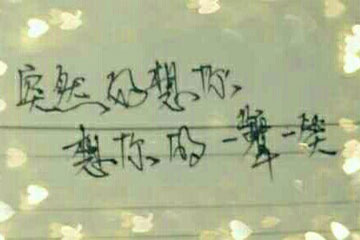 突然好想你、
想你、的一颦一笑